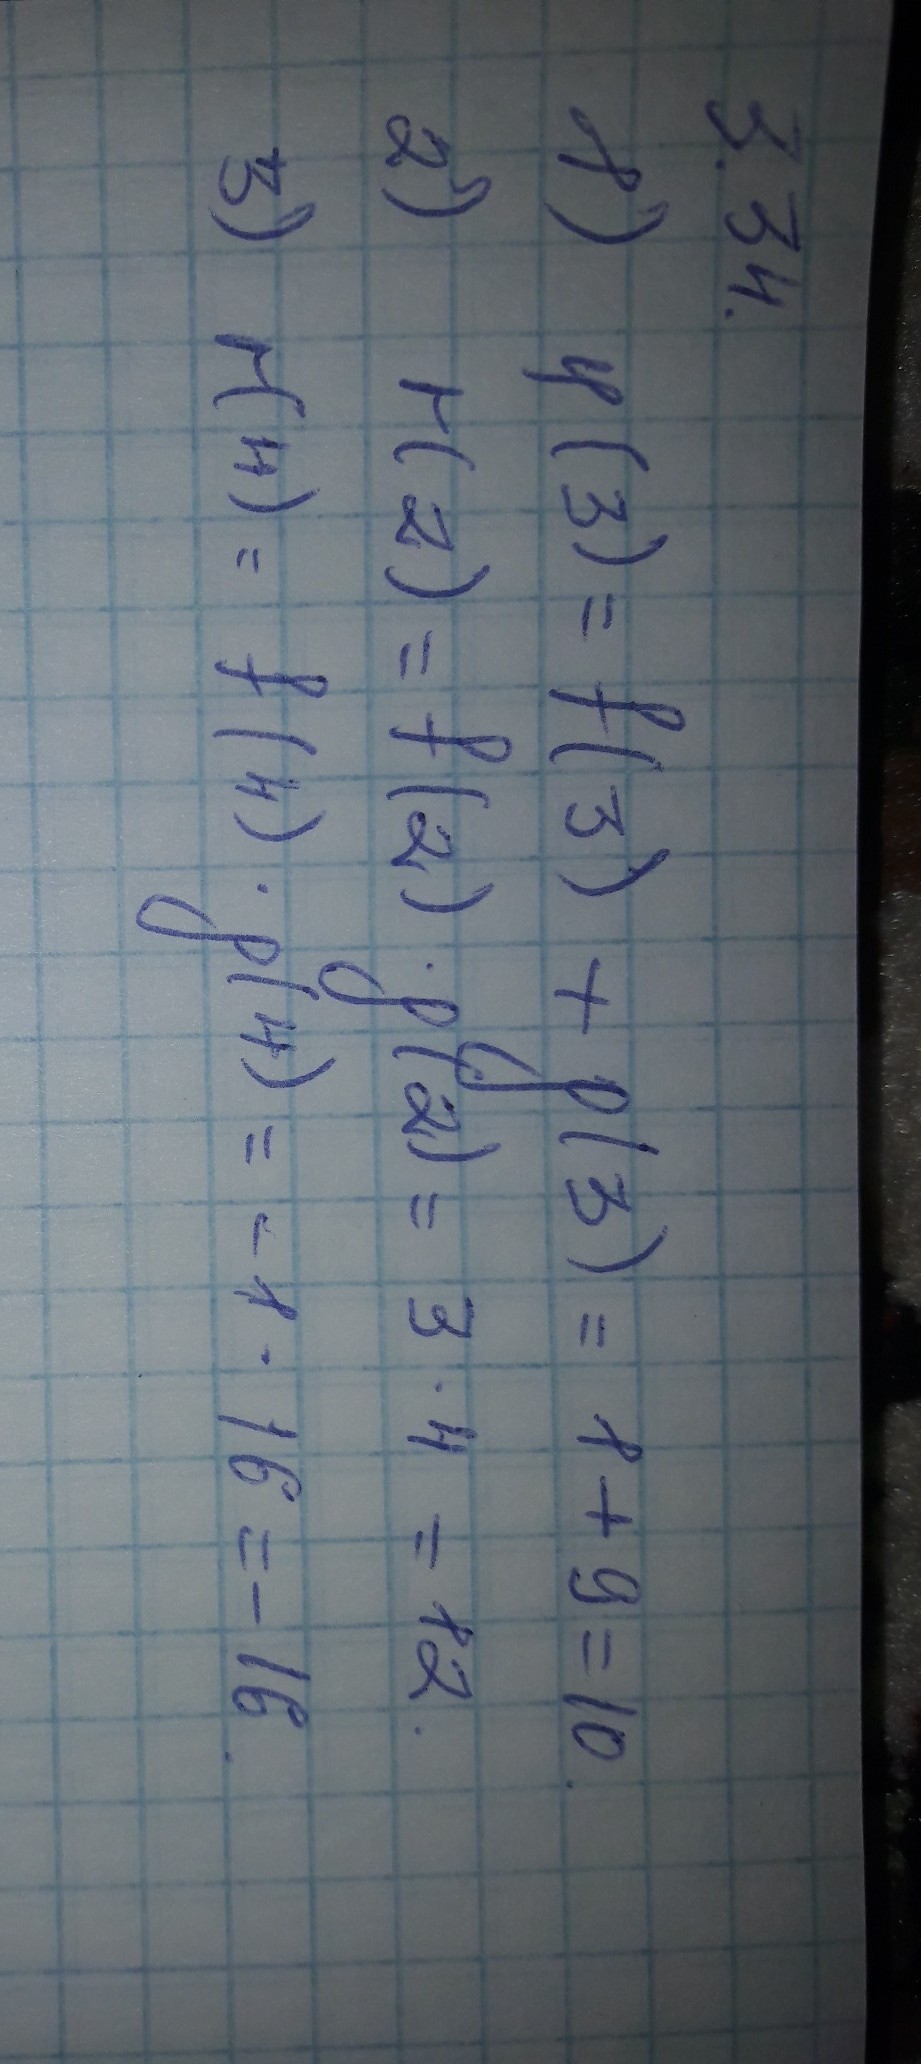 3.34.
1) φ(3) = f(3) + p(3) = 1 + 9 = 10.
2) r(2) = f(2) · p(2) = 3 · 4 = 12.
3) r(4) = f(4) · p(4) = -1 · 16 = -16.